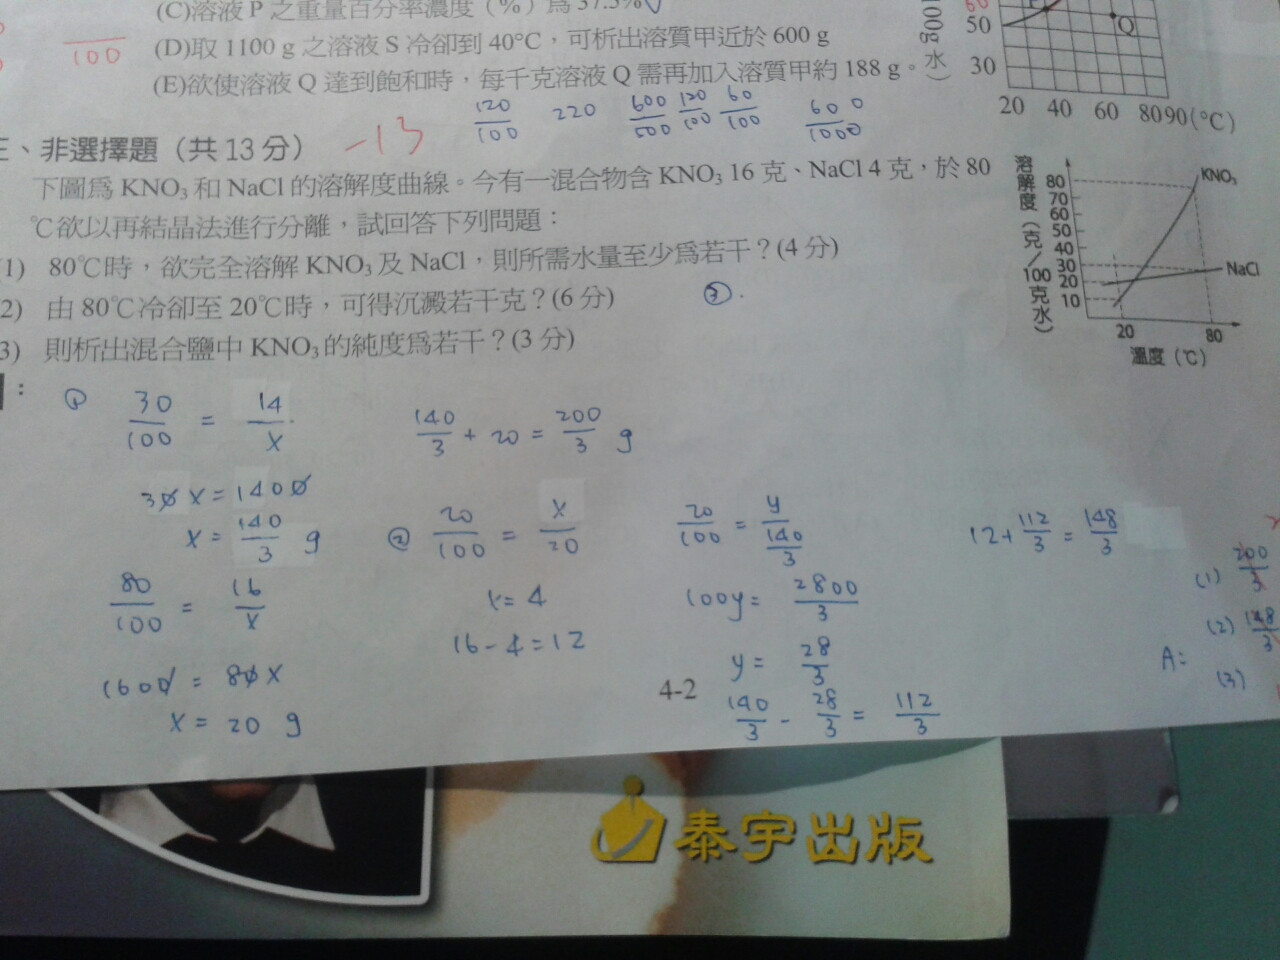 (C)溶液 P 之重量百分率濃度（%）為 37.5%
(D)取 1100 g 之溶液 S 冷卻到 40°C，可析出溶質甲近於 600 g
(E)欲使溶液 Q 達到飽和時，每千克溶液 Q 需再加入溶質甲約 188 g。
100
120/100 220 600/500 120/100 60/100 600/1000
50
30
20 40 60 80 90(°C)
Q
100g水）
三、非選擇題（共 13 分） -13
下圖為 KNO₃ 和 NaCl 的溶解度曲線。今有一混合物含 KNO₃ 16 克、NaCl 4 克，於 80
℃欲以再結晶法進行分離，試回答下列問題：
1) 80℃時，欲完全溶解 KNO₃ 及 NaCl，則所需水量至少為若干？(4 分)
2) 由 80℃冷卻至 20℃時，可得沉澱若干克？(6 分)
3) 則析出混合鹽中 KNO₃ 的純度為若干？(3 分)
③.
溶解度（克／100克水）
80
70
60
50
40
30
20
10
KNO₃
NaCl
20 80
溫度（℃）
：
① 30/100 = 14/x
30x = 1400
x = 140/3 g
80/100 = 16/x
1600 = 80x
x = 20 g
140/3 + 20 = 200/3 g
② 20/100 = x/20
x = 4
16-4=12
20/100 = y/(140/3)
100y = 2800/3
y = 28/3
140/3 - 28/3 = 112/3
12+112/3 = 148/3
A:
(1) 200/3
(2) 148/3
(3)
4-2
泰宇出版